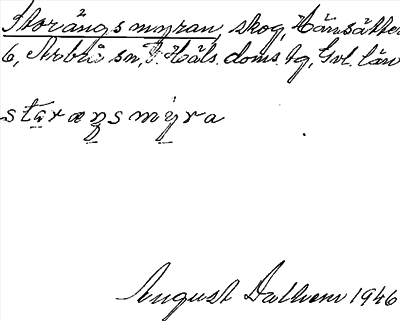 Storängsmyran, skog, Hänsätter
6, Arbrå sn, V. Häls. doms. tg, Gvl. län
staræŋsmyra
August Dalhem 1946